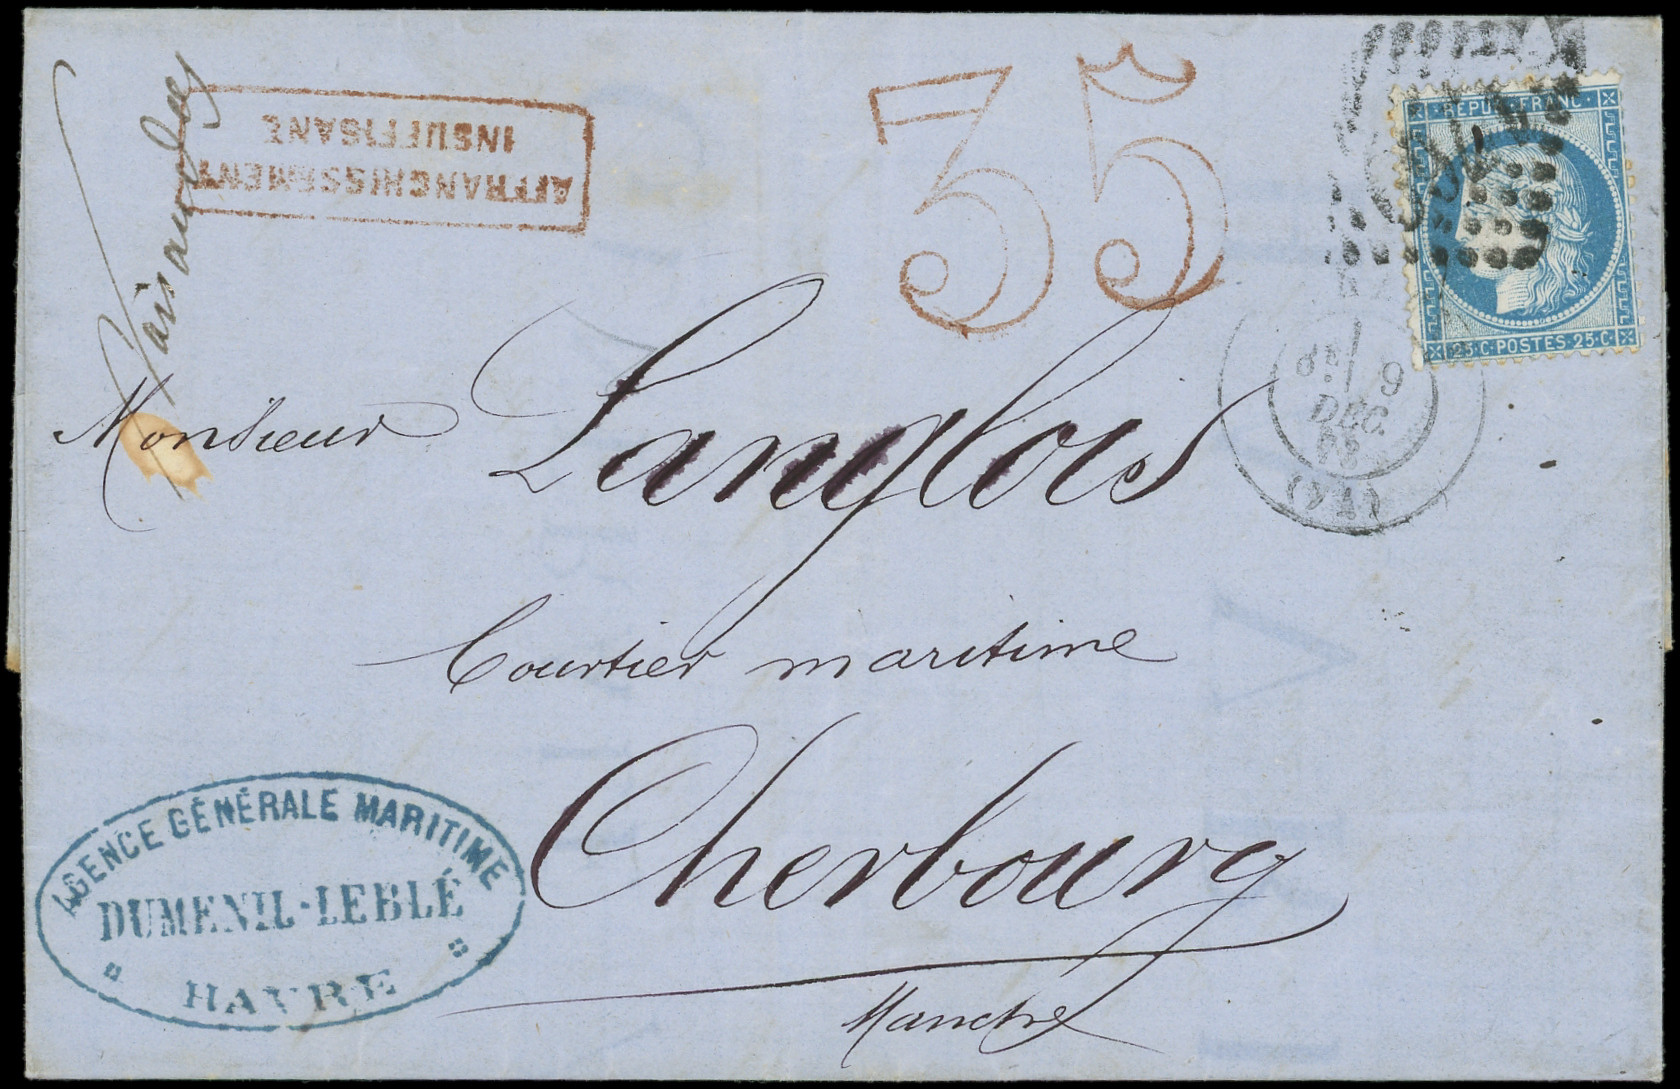 AFFRANCHISSEMENT
INSUFFISANT
35
REPUB·FRANC·
25·C·POSTES·25·C
9
DÉC.
Monsieur Langlois
Courtier maritime
Cherbourg
Manche
AGENCE GÉNÉRALE MARITIME
DUMENIL-LEBLÉ
HAVRE